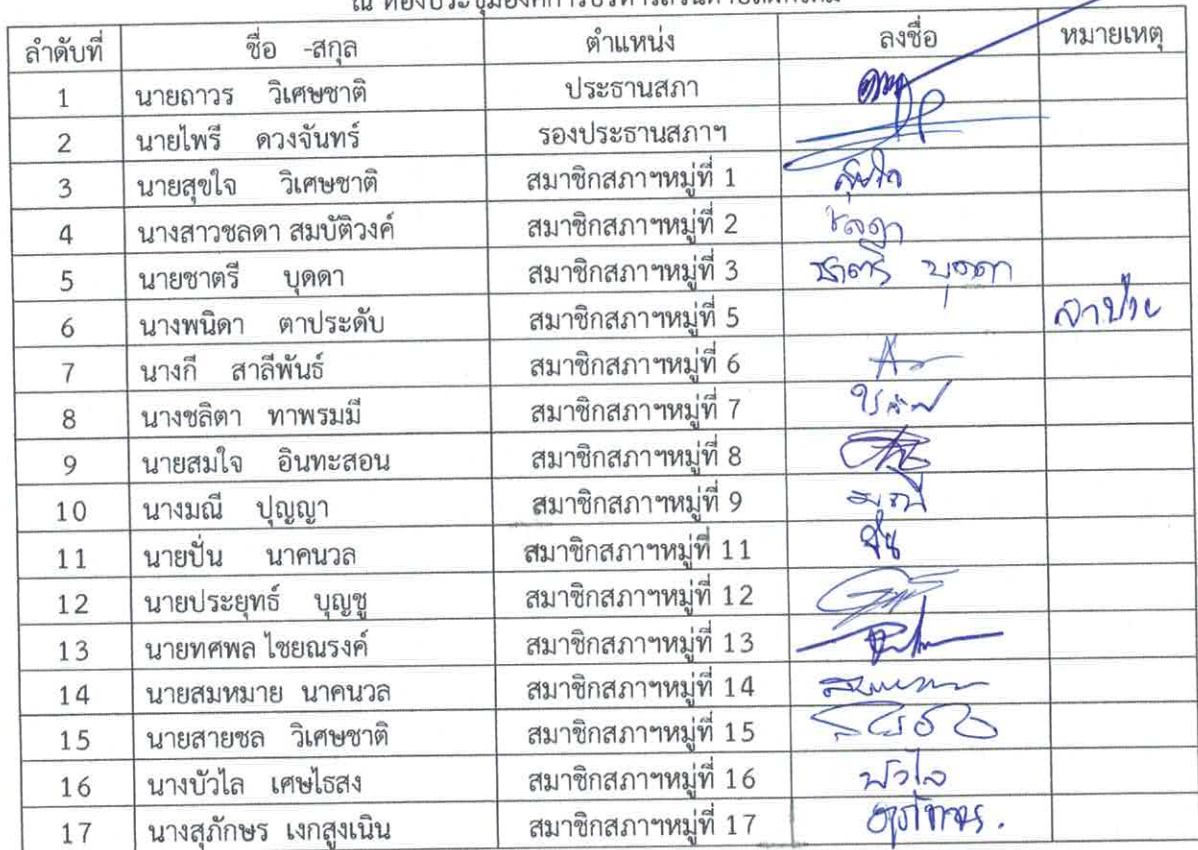 ลำดับที่ ชื่อ -สกุล ตำแหน่ง ลงชื่อ หมายเหตุ
1 นายถาวร วิเศษชาติ ประธานสภา
2 นายไพรี ดวงจันทร์ รองประธานสภาฯ
3 นายสุขใจ วิเศษชาติ สมาชิกสภาฯหมู่ที่ 1 สุขใจ
4 นางสาวชลดา สมบัติวงค์ สมาชิกสภาฯหมู่ที่ 2 ชลดา
5 นายชาตรี บุดดา สมาชิกสภาฯหมู่ที่ 3 ชาตรี บุดดา
6 นางพนิดา ตาประดับ สมาชิกสภาฯหมู่ที่ 5 ลาป่วย
7 นางกี สาลีพันธ์ สมาชิกสภาฯหมู่ที่ 6
8 นางชลิตา ทาพรมมี สมาชิกสภาฯหมู่ที่ 7
9 นายสมใจ อินทะสอน สมาชิกสภาฯหมู่ที่ 8
10 นางมณี ปุญญา สมาชิกสภาฯหมู่ที่ 9 มณี
11 นายปั่น นาคนวล สมาชิกสภาฯหมู่ที่ 11 ปั่น
12 นายประยุทธ์ บุญชู สมาชิกสภาฯหมู่ที่ 12
13 นายทศพล ไชยณรงค์ สมาชิกสภาฯหมู่ที่ 13
14 นายสมหมาย นาคนวล สมาชิกสภาฯหมู่ที่ 14
15 นายสายชล วิเศษชาติ สมาชิกสภาฯหมู่ที่ 15
16 นางบัวไล เศษไธสง สมาชิกสภาฯหมู่ที่ 16 บัวไล
17 นางสุภักษร เงกสูงเนิน สมาชิกสภาฯหมู่ที่ 17